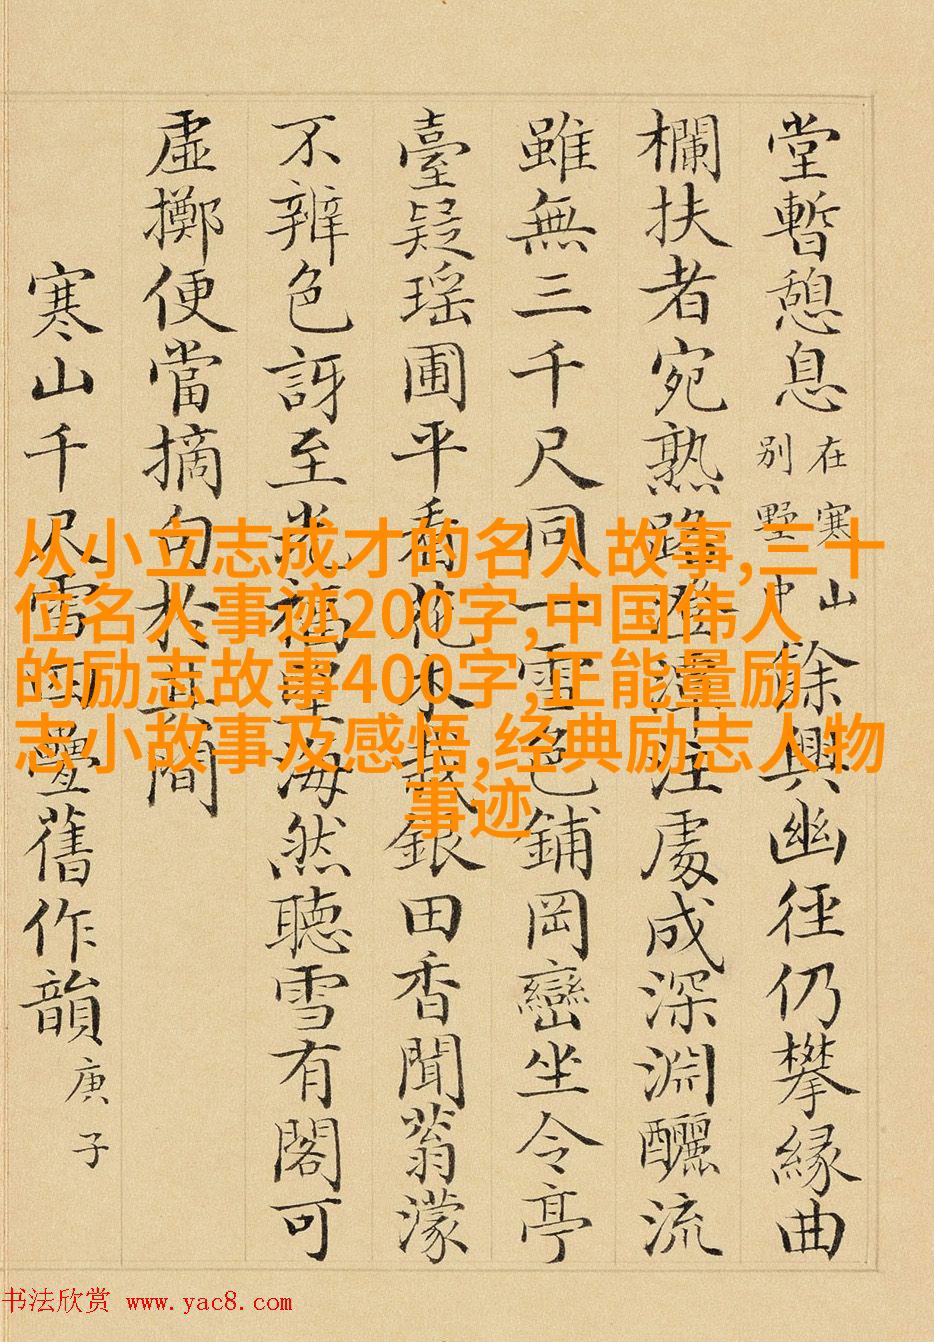 堂暫憩息
在寒山
別墅中
餘興幽徑仍攀緣曲
欄扶者宛熟路澄潭注處成深淵釃流
雖無三千尺同一雪色鋪岡巒坐令亭
臺疑瑤圃平看花木裝銀田香聞蓊濛
不辨色訝至光福海然聽雪有閣可
虛擲便當摘句於其間
寒山千尺雪疊舊作韻
庚子
从小立志成才的名人故事,三十
位名人事迹200字,中国伟人
的励志故事400字,正能量励
志小故事及感悟,经典励志人物
事迹
书法欣赏 www.yac8.com